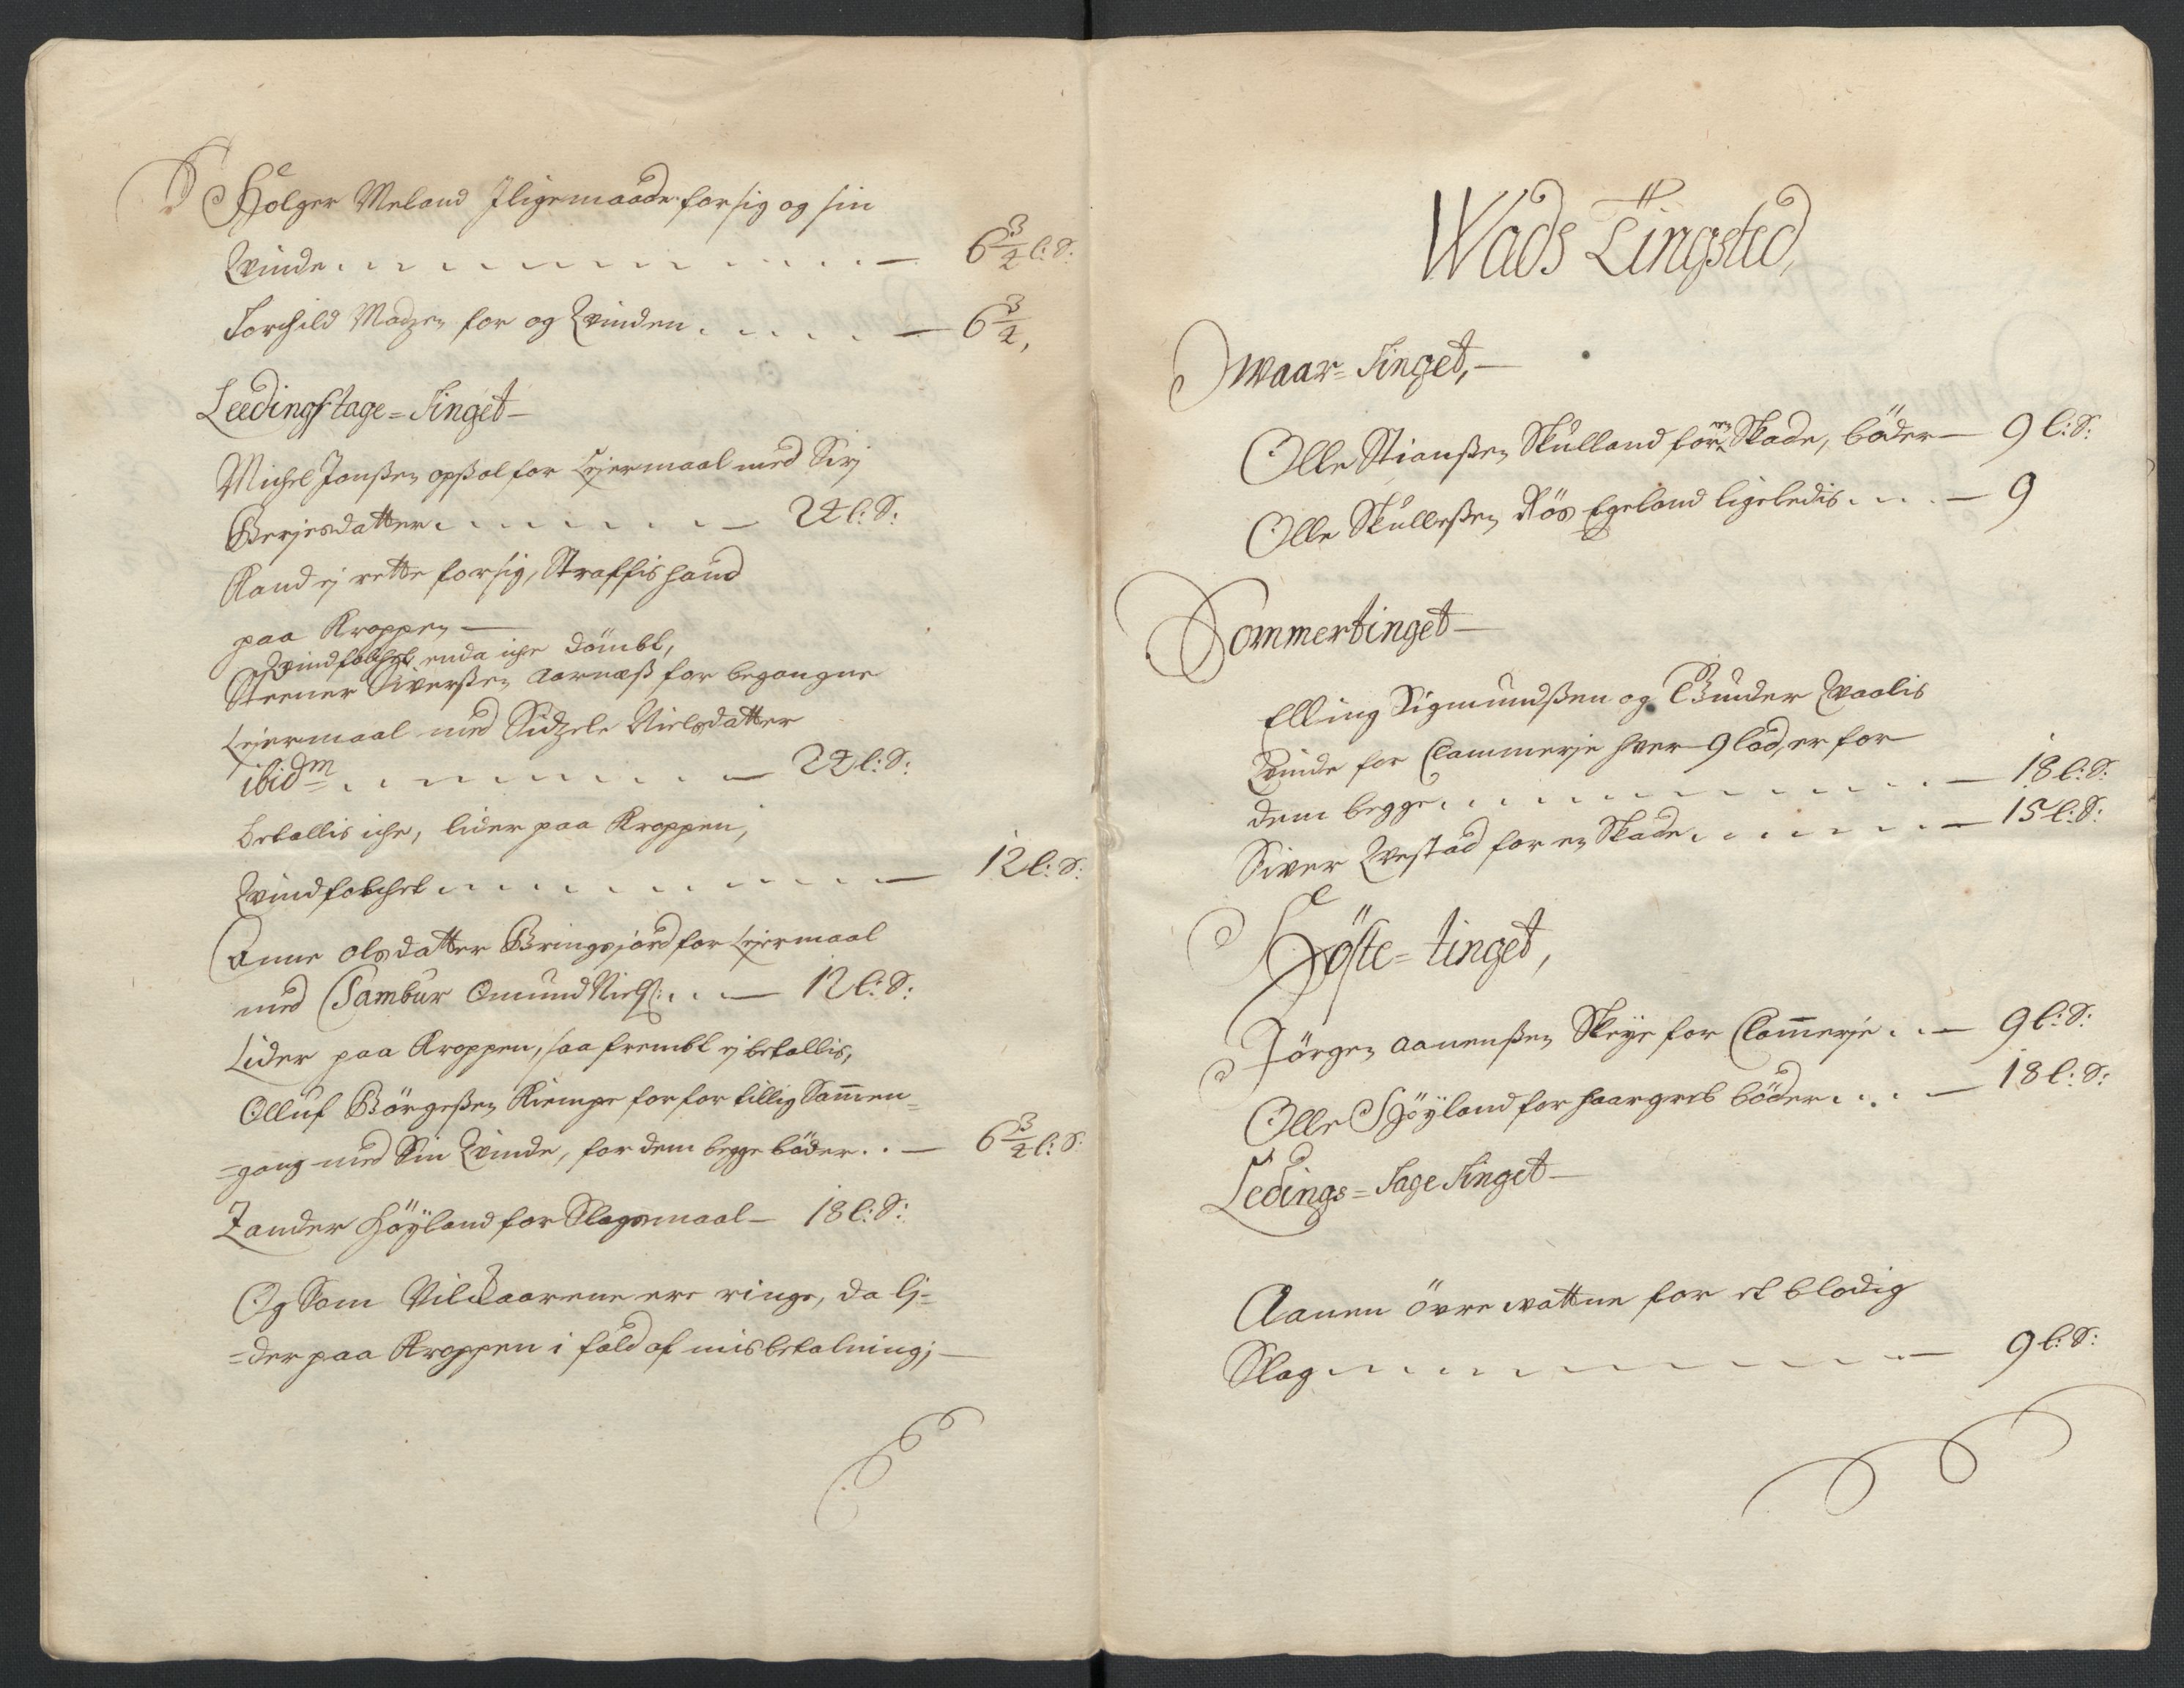 Holger Meland Jligemaade for sig og sin
Qvinde . . . . . . . . . . . . — 6 3/4 l: S:
Torchild Madzen for og Qvinden . . . . . — 6 3/4,
Leedingstage=Tinget—
Michel Jonßen opßal for Lejermaal med Sirj
Berjesdatter . . . . . . . — 24 l: S:
Kand ej rette for sig, Straffis hand
paa Kroppen —
Qvindfolchet enda iche dömbt,
Steener Siverßen Aarnæß for begangne
Lejermaal med Sidzele Nielsdatter
ibidm . . . . . . . — 24 l: S:
betallis iche, lider paa Kroppen,
Qvindfolchet . . . . . . . . . . — 12 l: S:
Anne olsdatter Bringsjord for Lejermaal
med Tambur Omund Niels: . . — 12 l: S:
Lider paa Kroppen, saa frembt ej betallis,
Olluf Börgeßen Kiempe for for tillig Sam̄en=
=gang med Sin Qvinde, for dem begge böder . . — 6 3/4 l: S:
Zander Höyland for Slagsmaal — 18 l: S:
Og Som Vilckaarene ere ringe, da lj=
=der paa Kroppen i fald af misbetalning; —
Wads Tingsted,
Waar=Tinget, —
Olle Stianßen Skulland for en Skade, böder — 9 l: S:
Olle Skulleßen Røs Egeland ligeledis . . . — 9
Sommertinget —
Elling Sigmundßen og Gunder Qvalis
Qvinde for Clammerje hver 9 lod, er for
dem begge . . . . . . . . . . . — 18 l: S:
Siver Qvestad for en Skade . . . . . . — 15 l: S:
Höste=tinget,
Jörgen Aanenßen Skeye for Clam̄erje . . — 9 l: S:
Olle Höyland for haargreb böder . . . — 18 l: S:
Ledings=Tage Tinget —
Aanen övre vattne for et blodig
Slag . . . . . . . . . . . — 9 l: S: